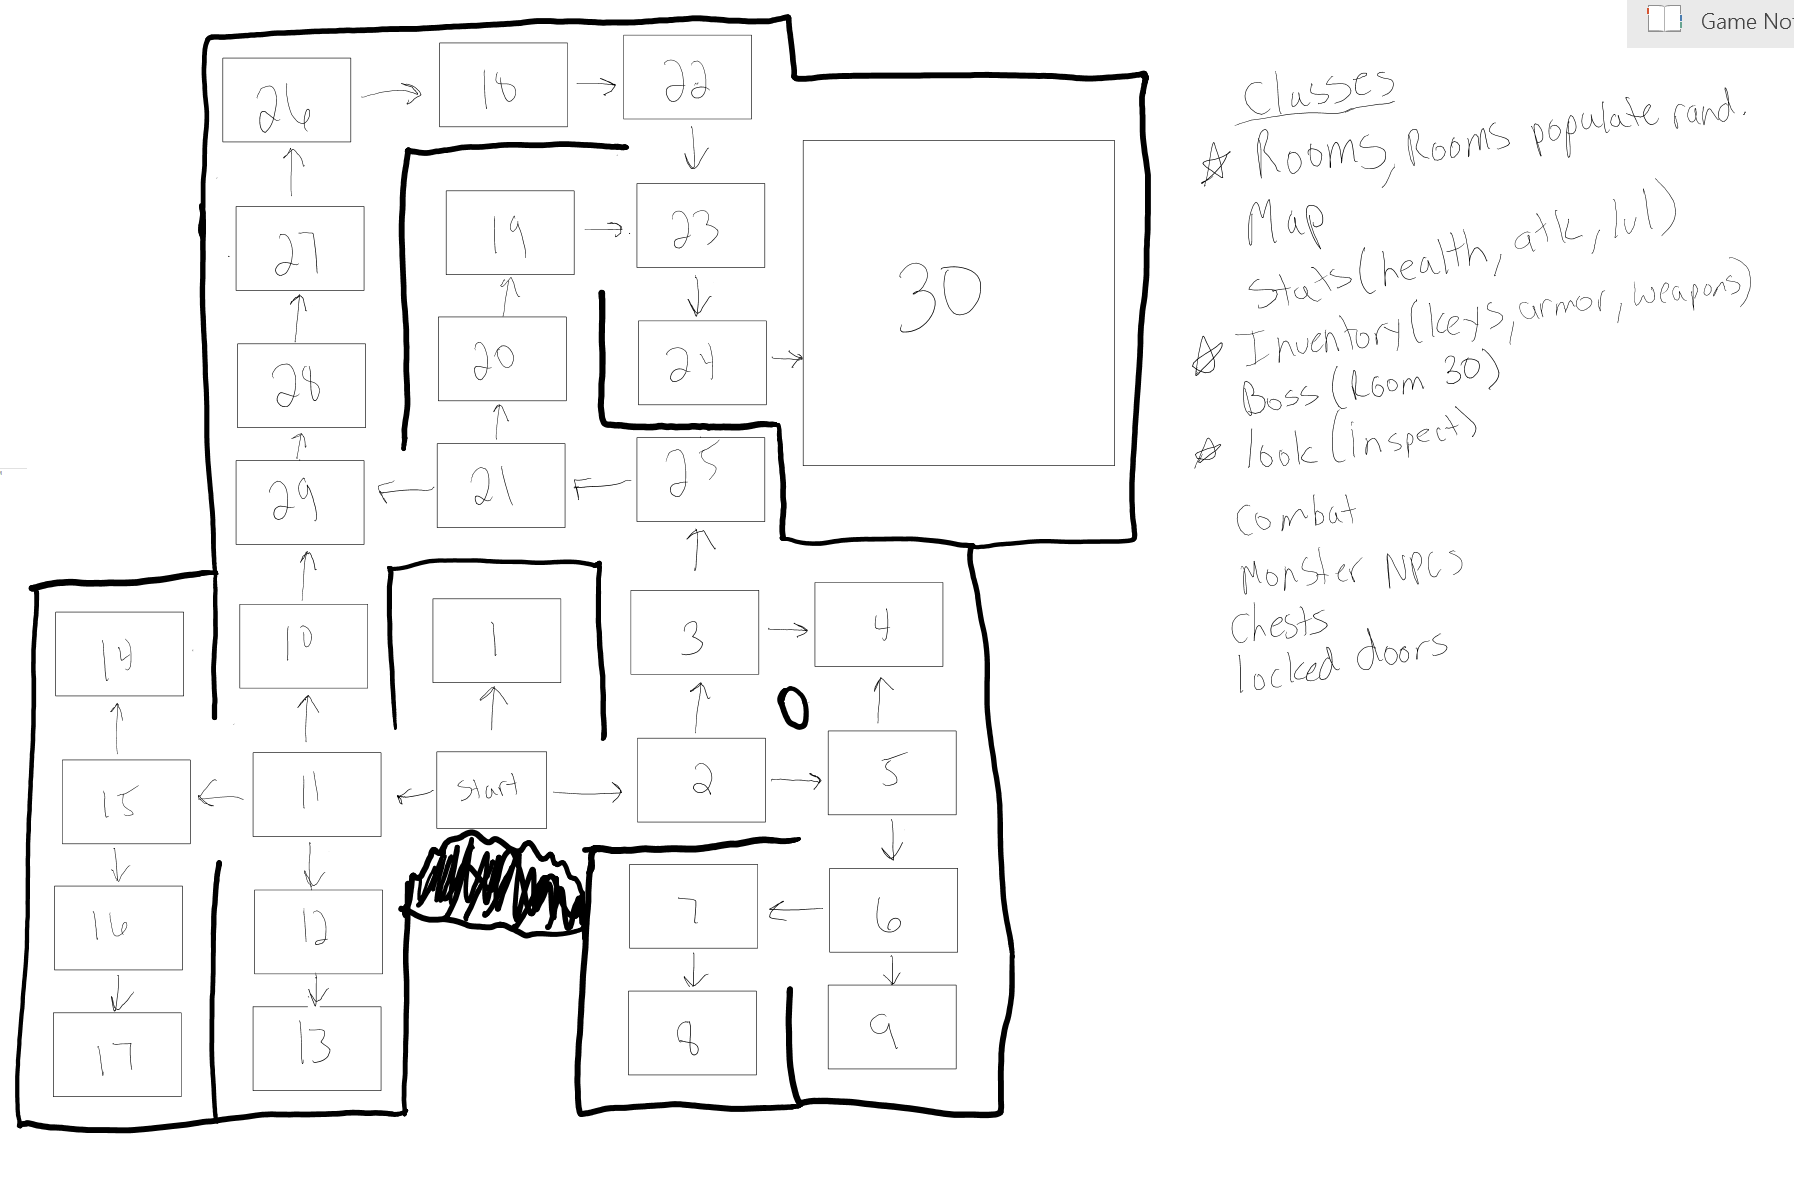 Game No
26
18
22
27
19
23
28
20
24
30
29
21
25
14
10
1
3
4
15
11
start
2
5
16
12
7
6
17
13
8
9
Classes
☆ Rooms, Rooms populate rand.
Map
Stats (health, atk, lvl)
☆ Inventory (keys, armor, weapons)
Boss (Room 30)
☆ look (inspect)
Combat
Monster NPCs
Chests
locked doors